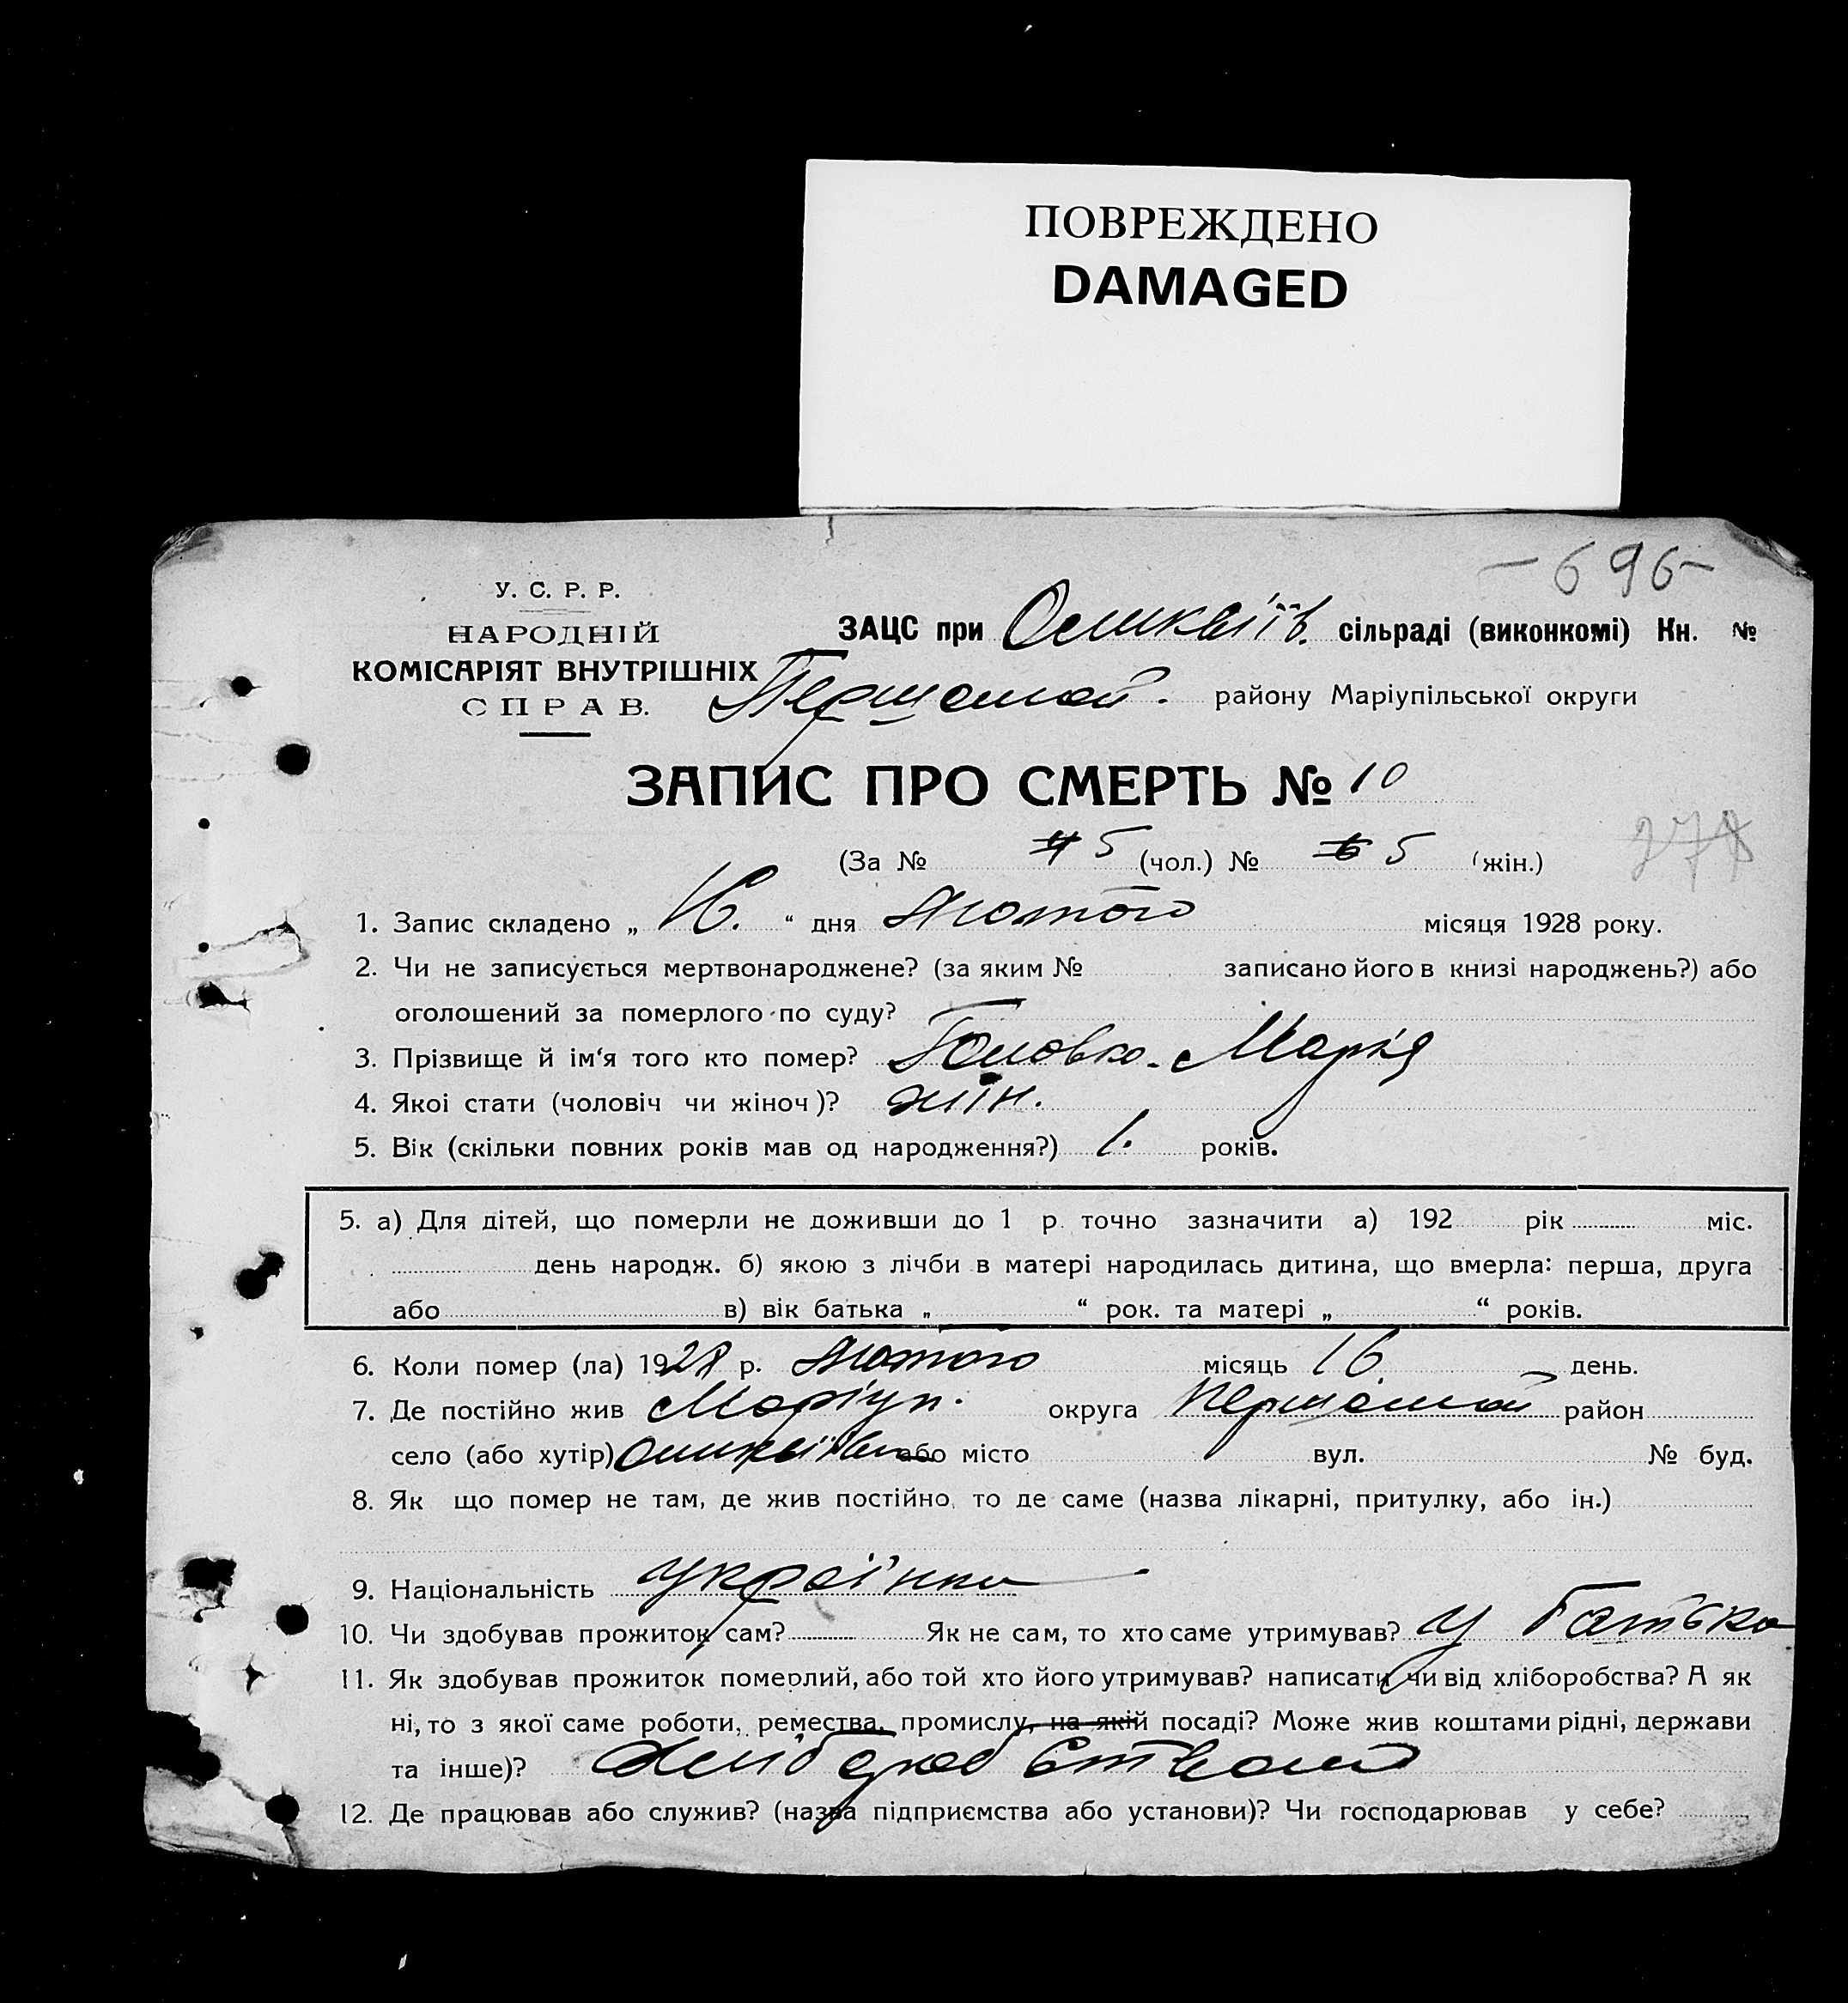 ПОВРЕЖДЕНО
DAMAGED
-696-
У. С. Р. Р.
НАРОДНІЙ
КОМІСАРІЯТ ВНУТРІШНІХ
СПРАВ.
ЗАЦС при сільраді (виконкомі) Кн. №
Першомай. району Маріупільської округи
ЗАПИС ПРО СМЕРТЬ № 10
(За № 5 (чол.) № 5 (жін.)
1. Запис складено „ “ дня Лютого місяця 1928 року.
2. Чи не записується мертвонароджене? (за яким № записано його в книзі народжень?) або
оголошений за померлого по суду?
3. Прізвище й ім‘я того кто помер? Головко Марія
4. Якоі стати (чоловіч чи жіноч)? жін.
5. Вік (скільки повних років мав од народження?) 1. років.
5. а) Для дітей, що померли не доживши до 1 р. точно зазначити а) 192 рік міс.
день народж. б) якою з лічби в матері народилась дитина, що вмерла: перша, друга
або в) вік батька „ “ рок. та матері „ “ років.
6. Коли помер (ла) 1928 р. Лютого місяць 16 день.
7. Де постійно жив Маріуп. округа Першомай район
село (або хутір) або місто вул. № буд.
8. Як що помер не там, де жив постійно, то де саме (назва лікарні, притулку, або ін.)
9. Національність Українка
10. Чи здобував прожиток сам? Як не сам, то хто саме утримував? у батька
11. Як здобував прожиток померлий, або той хто його утримував? написати чи від хліборобства? А як
ні, то з якої саме роботи, ремества, промислу, на якій посаді? Може жив коштами рідні, держави
та інше)?
12. Де працював або служив? (назва підприємства або установи)? Чи господарював у себе?